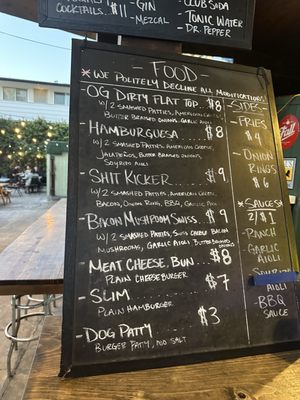 COCKTAILS...$11
-GIN
-MEZCAL
CLUB SODA
TONIC WATER
DR. PEPPER
- FOOD -
* WE POLITELY DECLINE ALL MODIFICATIONS!
- OG DIRTY FLAT TOP. $8
W/ 2 SMASHED PATTIES, AMERICAN CHEESE,
BUTTER BRAISED ONIONS, GARLIC AIOLI
- HAMBURGUESA $8
W/ 2 SMASHED PATTIES, AMERICAN CHEESE,
JALAPEÑOS, BUTTER BRAISED ONIONS,
AIOLI
- SHIT KICKER $9
W/ 2 SMASHED PATTIES, AMERICAN CHEESE,
BACON, ONION RING, BBQ, GARLIC AIOLI
- BACON MUSHROOM SWISS. $9
W/ 2 SMASHED PATTIES, SWISS CHEESE, BACON
MUSHROOMS, GARLIC AIOLI, BUTTER BRAISED ONIONS
- MEAT, CHEESE, BUN $8
PLAIN CHEESEBURGER
- SLIM $7
PLAIN HAMBURGER
- DOG PATTY $3
BURGER PATTY, NO SALT
- SIDES -
- FRIES
$4
- ONION
RINGS
$6
* SAUCES
2/$1
- RANCH
- GARLIC
AIOLI
AIOLI
- BBQ
SAUCE
Fall